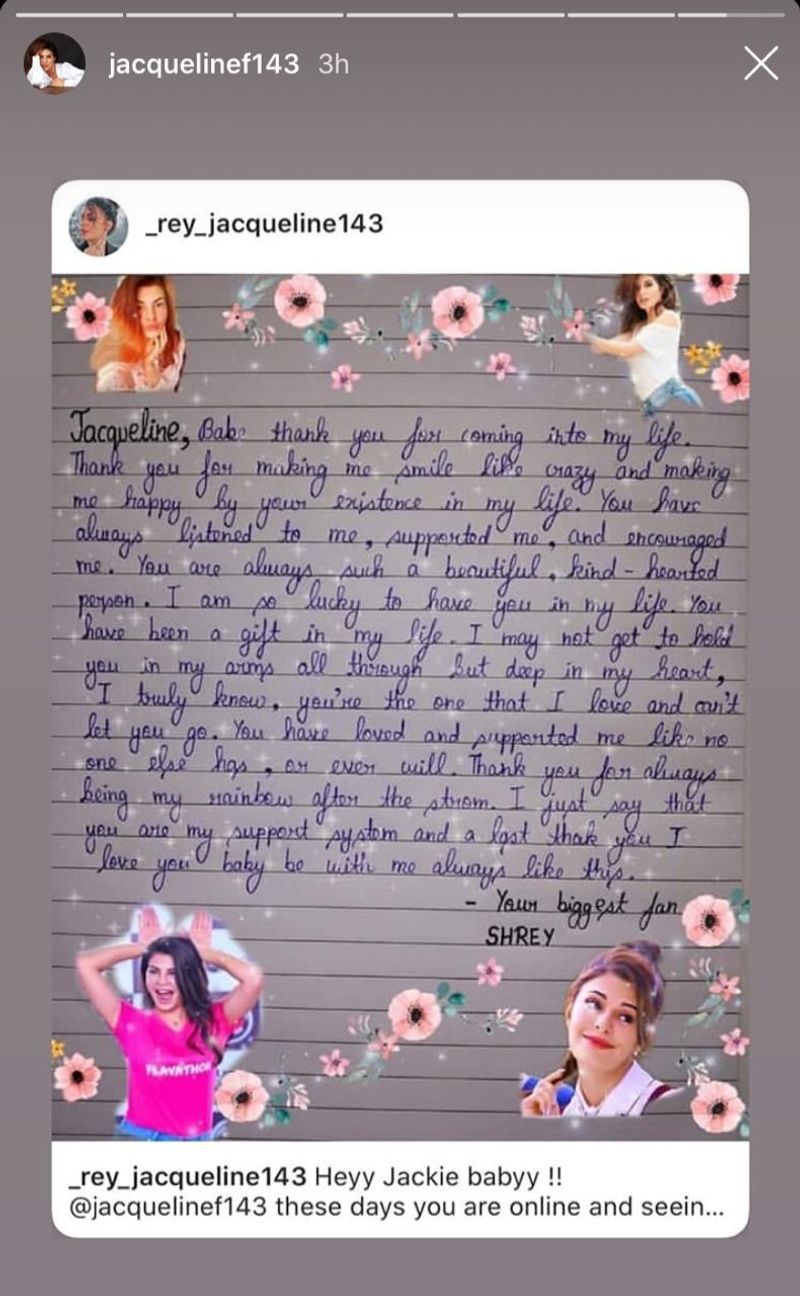 jacquelinef143 3h
_rey_jacqueline143
Jacqueline, Babe thank you for coming into my life.
Thank you for making me smile like crazy and making
me happy by your existence in my life. You have
always listened to me, supported me, and encouraged
me. You are always such a beautiful, kind-hearted
person. I am so lucky to have you in my life. You
have been a gift in my life. I may not get to hold
you in my arms all through but deep in my heart,
I truly know, you're the one that I love and can't
let you go. You have loved and supported me like no
one else has, or ever will. Thank you for always
being my rainbow after the strom. I just say that
you are my support system and a last thak you I
love you baby be with me always like this.
- Your biggest fan
SHREY
_rey_jacqueline143 Heyy Jackie babyy !!
@jacquelinef143 these days you are online and seein...